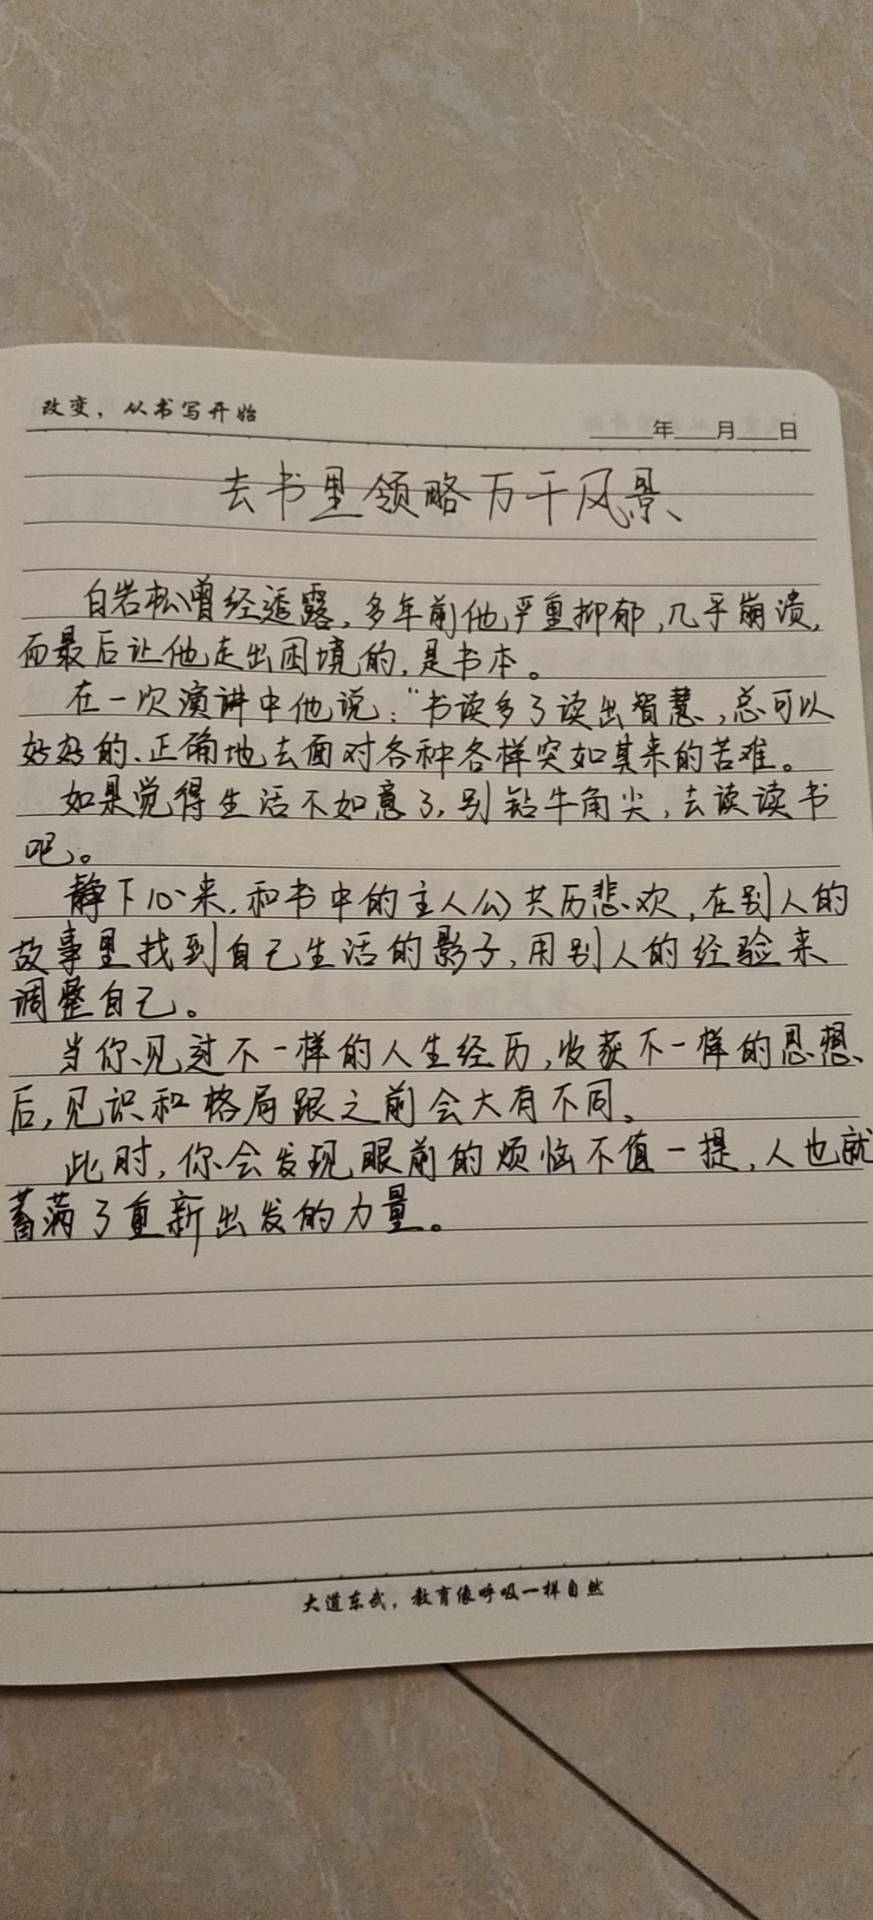 改变，从书写开始
年 月 日
去书里领略万千风景
白岩松曾经透露，多年前他严重抑郁，几乎崩溃，
而最后让他走出困境的，是书本。
在一次演讲中他说：“书读多了读出智慧，总可以
好好的、正确地去面对各种各样突如其来的苦难。
如果觉得生活不如意了，别钻牛角尖，去读读书
吧。
静下心来，和书中的主人公共历悲欢，在别人的
故事里找到自己生活的影子，用别人的经验来
调整自己。
当你见过不一样的人生经历，收获不一样的思想
后，见识和格局跟之前会大有不同。
此时，你会发现眼前的烦恼不值一提，人也就
蓄满了重新出发的力量。
大道东武，教育像呼吸一样自然